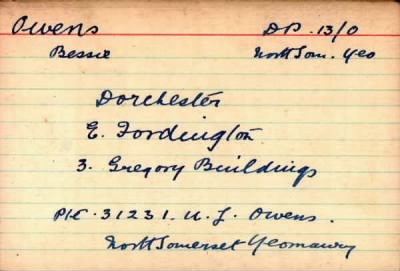 Owens DP. 13/0
Bessie North Som. Yeo
Dorchester
E. Fordington
3. Gregory Buildings
Pte. 31231. U. J. Owens.
North Somerset Yeomanry